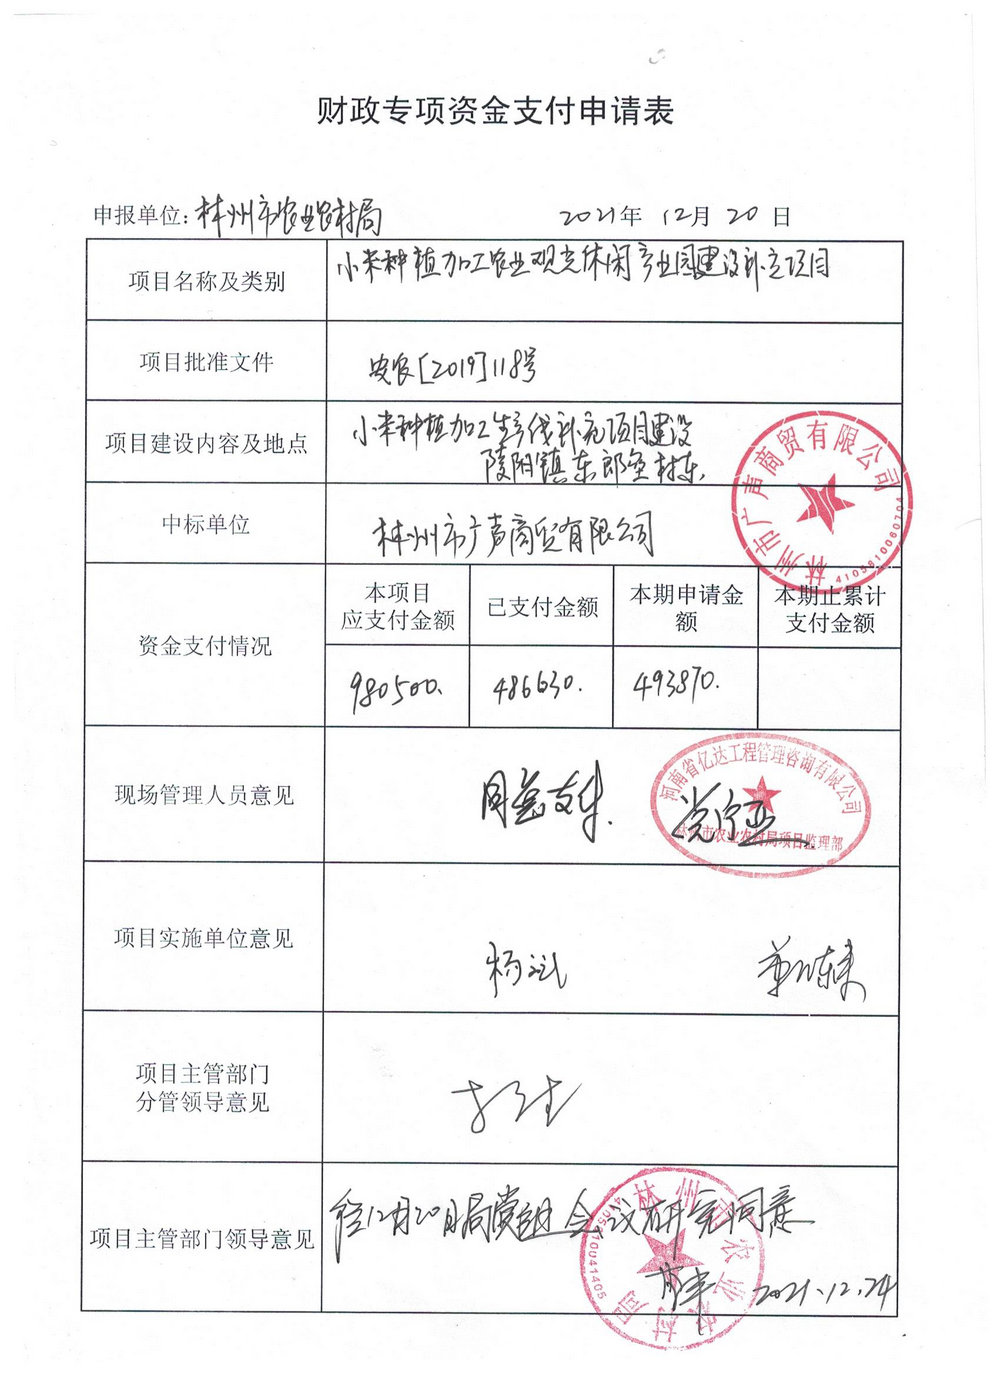 财政专项资金支付申请表
申报单位:林州市农业农村局 2021年 12月 20日
项目名称及类别 小米种植加工农业观光休闲产业园建设补充项目
项目批准文件 安农[2019]118号
项目建设内容及地点 小米种植加工生产线补充项目建设
陵阳镇东郎垒村东.
中标单位 林州市广声商贸有限公司
林州市广声商贸有限公司
4105810060704
资金支付情况
本项目
应支付金额
已支付金额
本期申请金
额
本期止累计
支付金额
980500. 486630. 493870.
现场管理人员意见 同意支付.
河南省亿达工程管理咨询有限公司
林州市农业农村局项目监理部
项目实施单位意见 杨斌
项目主管部门
分管领导意见
项目主管部门领导意见 经12月20日局党组会议研究同意
2021.12.24
林州市农业农村局
4105810041405